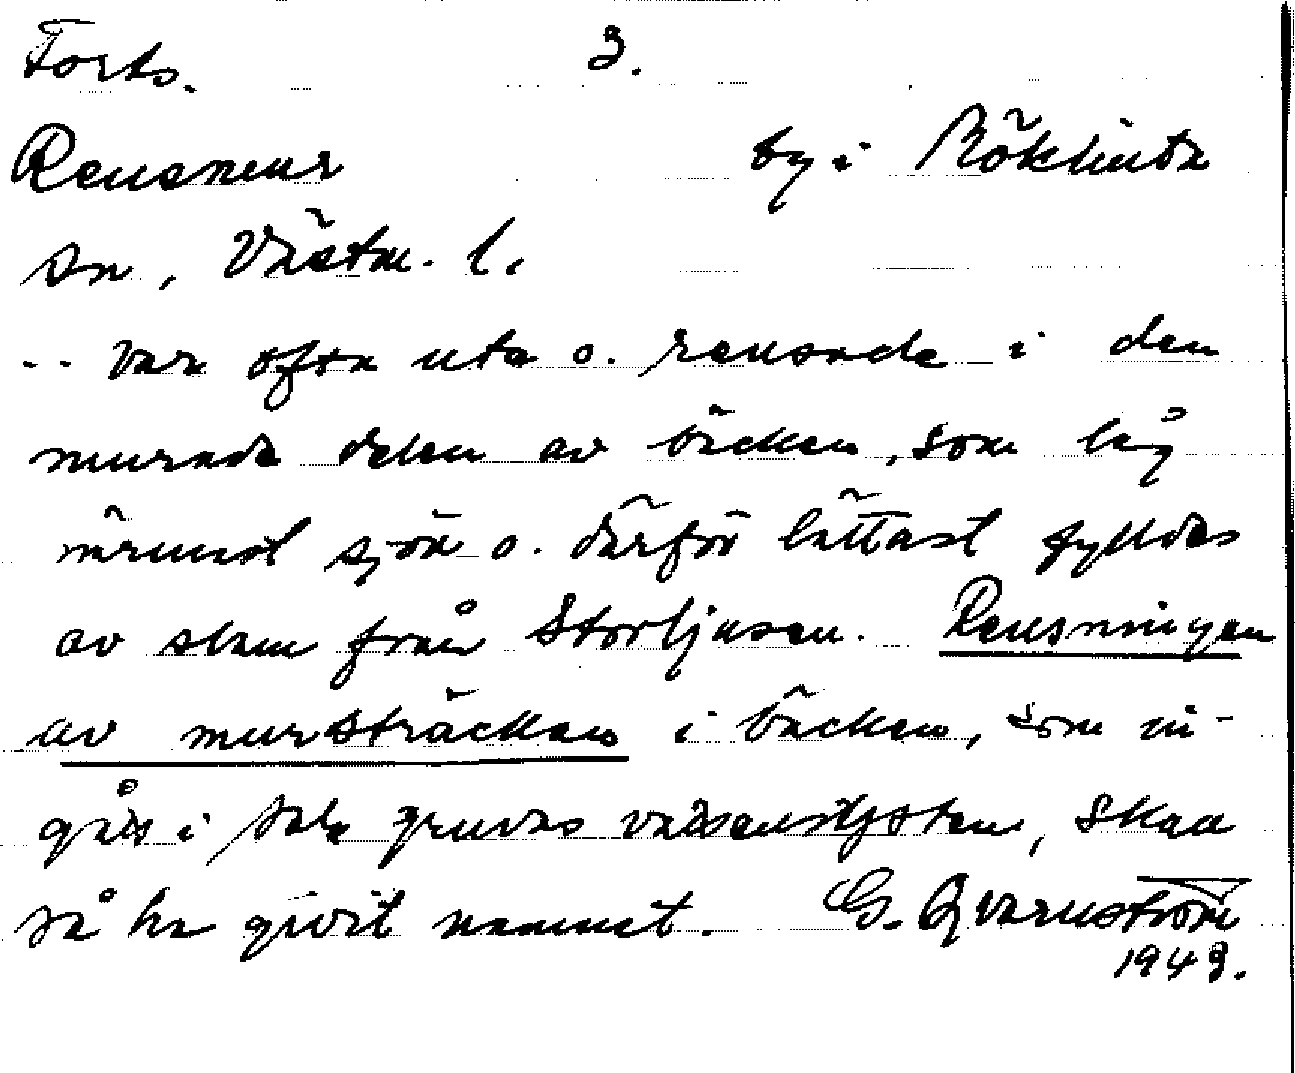 Forts. 3.
Rensmur by i Möklinta
sn, Västm. l.
-- var ofta ute o. rensade i den
murade delen av bäcken, som låg
närmast sjön o. därför lättast fylldes
av slam från Storljusen. Rensningen
av mursträckan i bäcken, som in-
gått i Sala gruvas vattensystem, skall
så ha givit namnet. G. Qvarnström
1943.